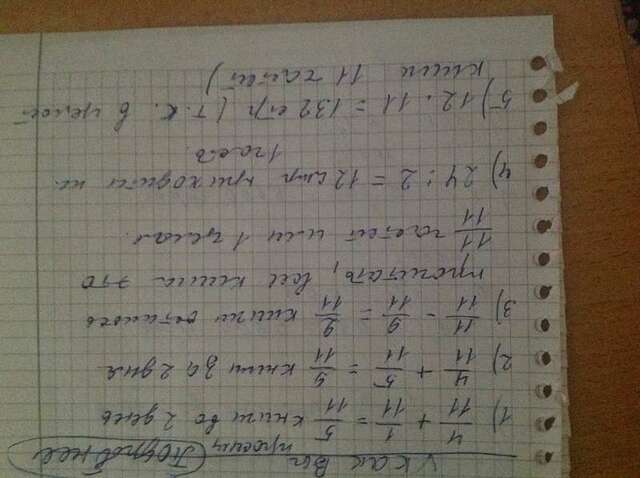 как Вы
просили Подробнее
1) 4/11 + 1/11 = 5/11 книги во 2 день
2) 4/11 + 5/11 = 9/11 книги за 2 дня
3) 11/11 - 9/11 = 2/11 книги осталось
прочитать, вся книга это
11/11 частей или 1 целая.
4) 24 : 2 = 12 стр приходится на
1 часть.
5) 12 · 11 = 132 стр (т.к. в целой
книге 11 частей)